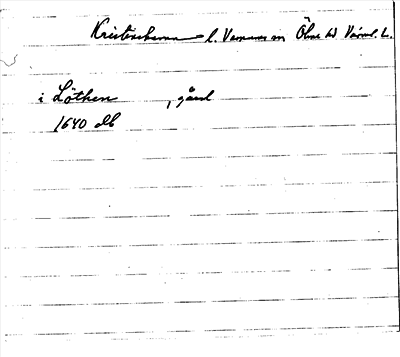 Kristinehamn l. Varnums sn Ölme hd Värml. l.
i Löthen , gård
1640 db